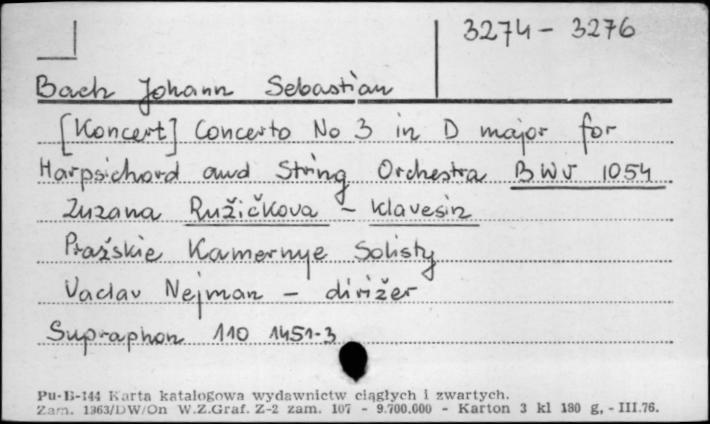 3274 - 3276
Bach Johann Sebastian
[Koncert] Concerto No 3 in D major for
Harpsichord and String Orchestra BWV 1054
Zuzana Ružičkova - klavesin
Pražskie Kamernye Solisty
Vaclav Nejman - dirižer
Supraphon 110 1451-3
Pu-B-144 Karta katalogowa wydawnictw ciągłych i zwartych.
Zam. 1363/DW/On W.Z.Graf. Z-2 zam. 107 - 9.700.000 - Karton 3 kl 180 g, - III.76.